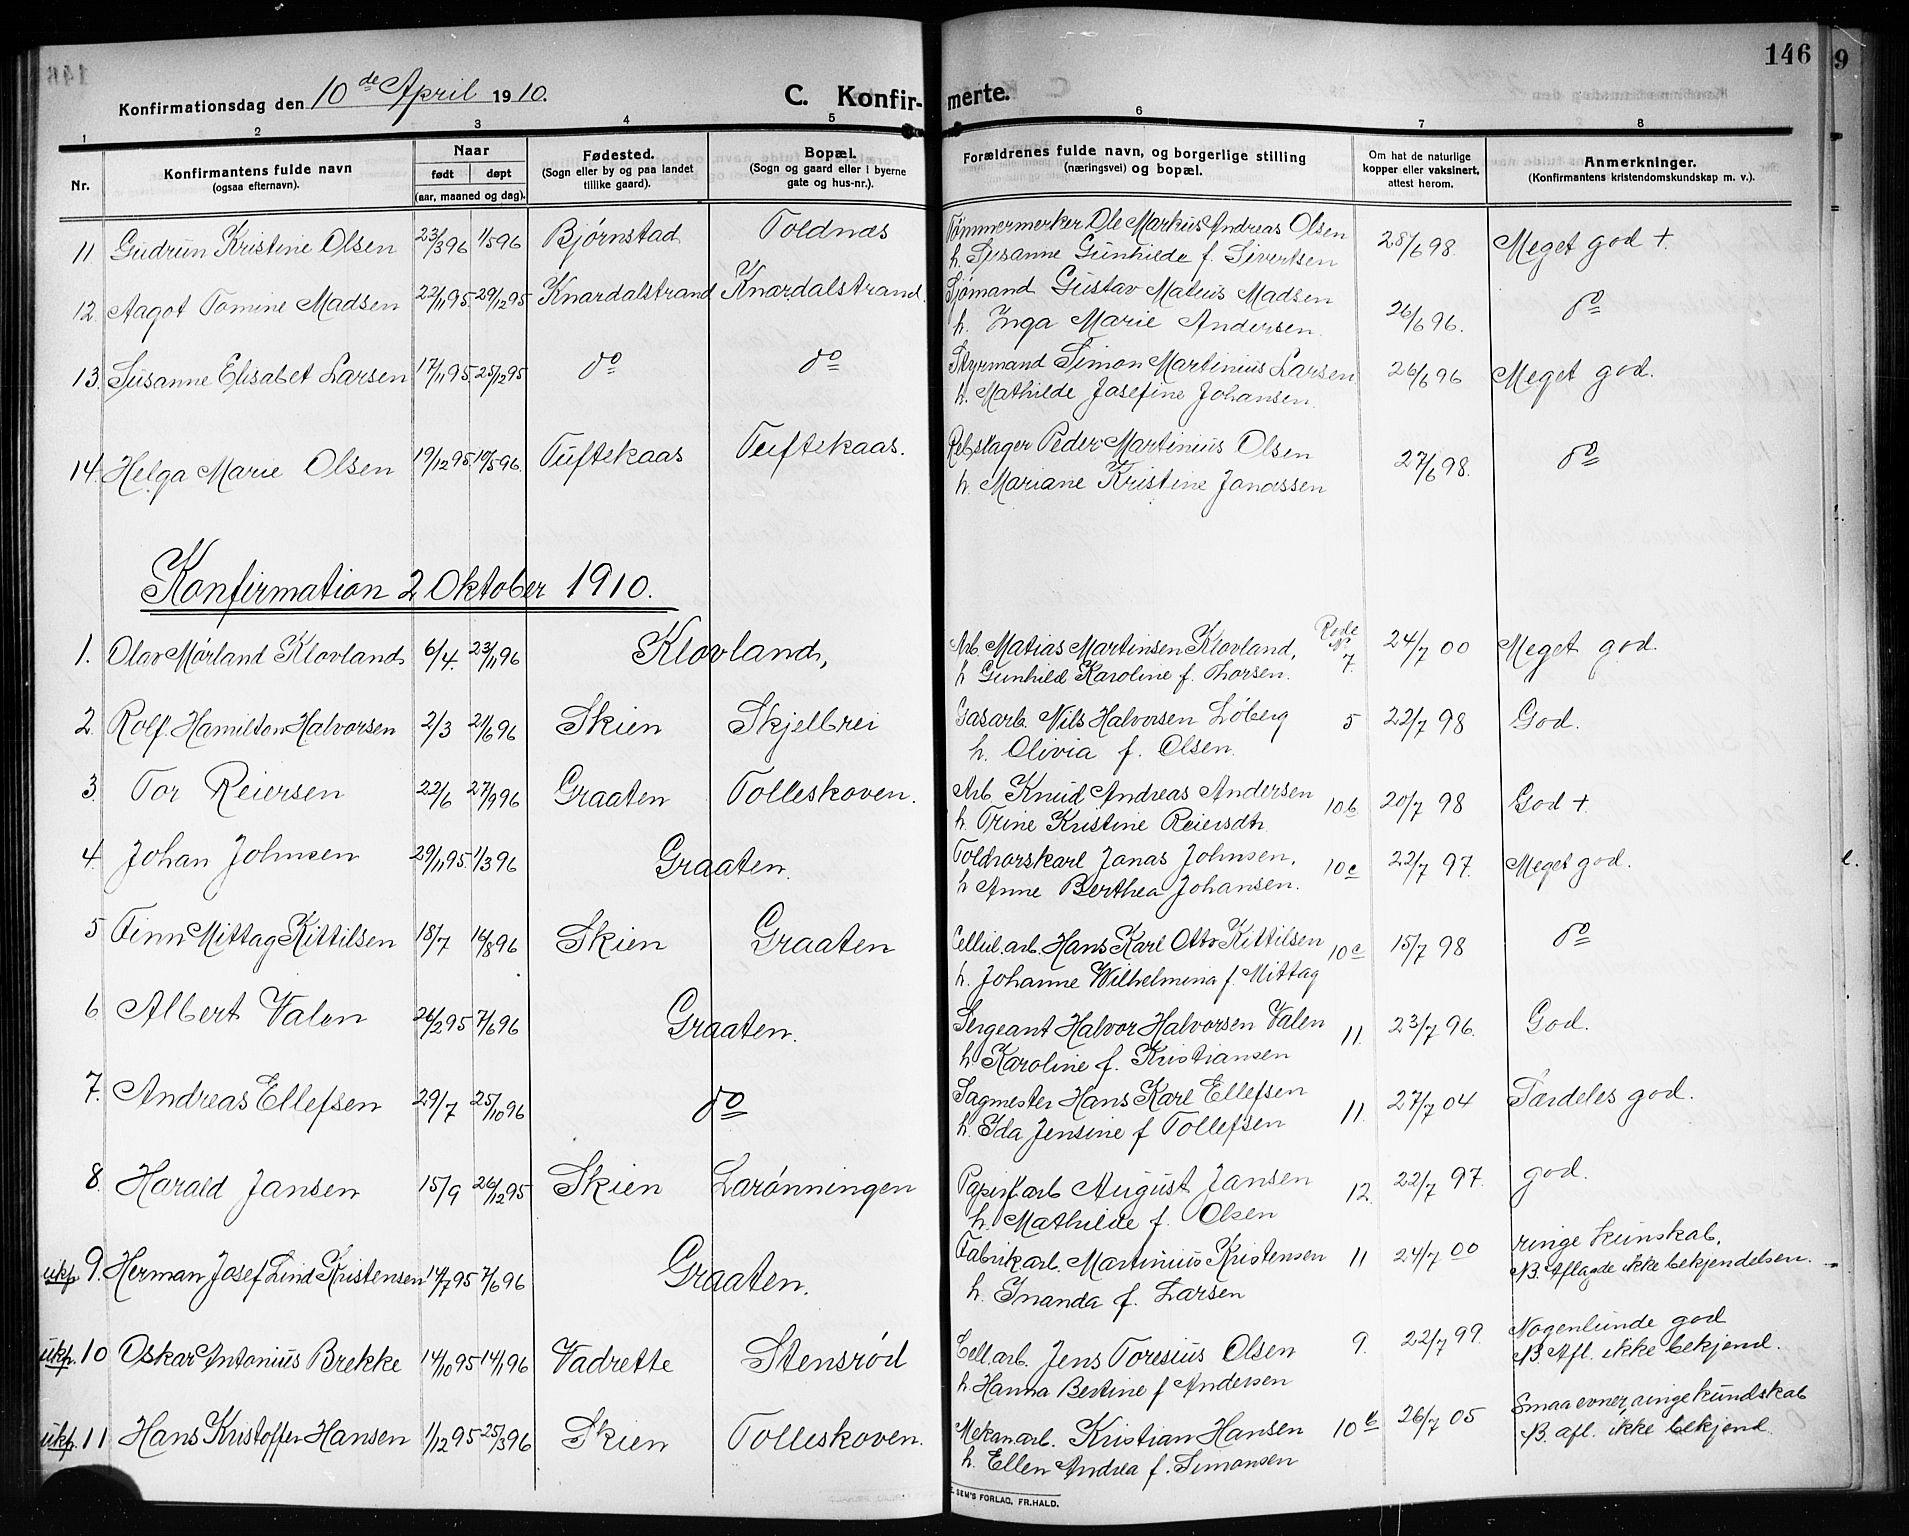 146
Konfirmationsdag den 10de April 1910.
C. Konfir-merte.
1 2 3 4 5 6 7 8
Nr.
Konfirmantens fulde navn
(ogsaa efternavn).
Naar
født døpt
(aar, maaned og dag).
Fødested.
(Sogn eller by og paa landet
tillike gaard).
Bopæl.
(Sogn og gaard eller i byerne
gate og hus-nr.).
Forældrenes fulde navn, og borgerlige stilling
(næringsvei) og bopæl.
Om hat de naturlige
kopper eller vaksinert,
attest herom.
Anmerkninger.
(Konfirmantens kristendomskundskap m. v.).
11 Gudrun Kristine Olsen 23/3 96 1/5 96 Bjørnstad Toldnæs Tømmermerker Ole Markus Andreas Olsen 28/6 98. Meget god +
h. Susanne Gunhilde f. Sivertsen
12. Aagot Tomine Madsen 22/11 95. 29/12 95 Knardalstrand Knardalstrand. Sjømand Gustav Matius Madsen 26/6 96. do
h. Inga Marie Andersen.
13. Susanne Elisabet Larsen 17/11 95. 25/12 95 do do Styrmand Simon Martinius Larsen 26/6 96 Meget god.
h. Mathilde Josefine Johansen.
14. Helga Marie Olsen 19/12 95. 10/5 96. Tuftekaas Tuftekaas. Rebslager Peder Martinius Olsen 27/6 98. do
h. Mariane Kristine Janassen
Konfirmation 2 Oktober 1910.
1. Olav Mørland Klovland 6/4. 23/11 96 Klovland, Arb. Matias Martinsen Klovland, Rode No 7. 24/7 00 Meget god.
h Gunhild Karoline f. Thorsen.
2. Rolf Hamilton Halvorsen 2/3 21/6 96 Skien Skjelbrei Gasarb. Nils Halvorsen Løberg 5 22/7 98 God.
h. Olivia f. Olsen.
3. Tor Reiersen 22/6 27/9 96 Graaten Tolleskoven. Arb. Knud Andreas Andersen 10b 20/7 98 God +
h. Trine Kristine Reiersdtr
4. Johan Johnsen 29/11 95 1/3 96 Graaten. Toldvorskarl Jonas Johnsen. 10c 22/7 97. Meget god.
h Anne Berthea Johansen.
5 Finn Mittag Kittilsen 18/7 16/8 96 Skien Graaten Cellul.arb. Hans Karl Otto Kittilsen 10c 15/7 98 do
h. Johanne Wilhelmina f. Mittag
6 Albert Valen 26/2 95 7/6 96 Graaten. Sergeant Halvor Halvorsen Valen 11. 23/7 96. God.
h Karoline f. Kristiansen
7. Andreas Ellefsen 29/7 25/10 96 do Sagmester Hans Karl Ellefsen 11. 27/7 04 Særdeles god.
h. Ida Jensine f Tollefsen
8. Harald Jansen 15/9 26/12 95 Skien Larønningen Papirf.arb August Jansen 12. 22/7 97. god.
h. Mathilde f. Olsen
ukf. 9. Herman Josef Lind Kristensen 14/7 95 7/6 96 Graaten. Fabrikarb. Martinius Kristensen 11 24/7 00 ringe kunskab,
h. Inanda f. Larsen NB. Aflagde ikke bekjendelsen.
ukf. 10 Oskar Antonius Brekke 14/10 95 14/1 96 Vadrette Stensrød Cell.arb. Jens Toresius Olsen 9. 22/7 99. Nogenlunde god
h. Hanna Bertine f Andersen NB Afl. ikke bekjend.
ukf. 11 Hans Kristoffer Hansen 1/12 95 25/3 96 Skien Tolleskoven. Mekan.arb. Kristian Hansen 10b 26/7 05 Smaa evner, ringe kundskab
h. Ellen Andrea f. Simonsen NB. afl. ikke bekjend.
SEM'S FORLAG, FR.HALD.